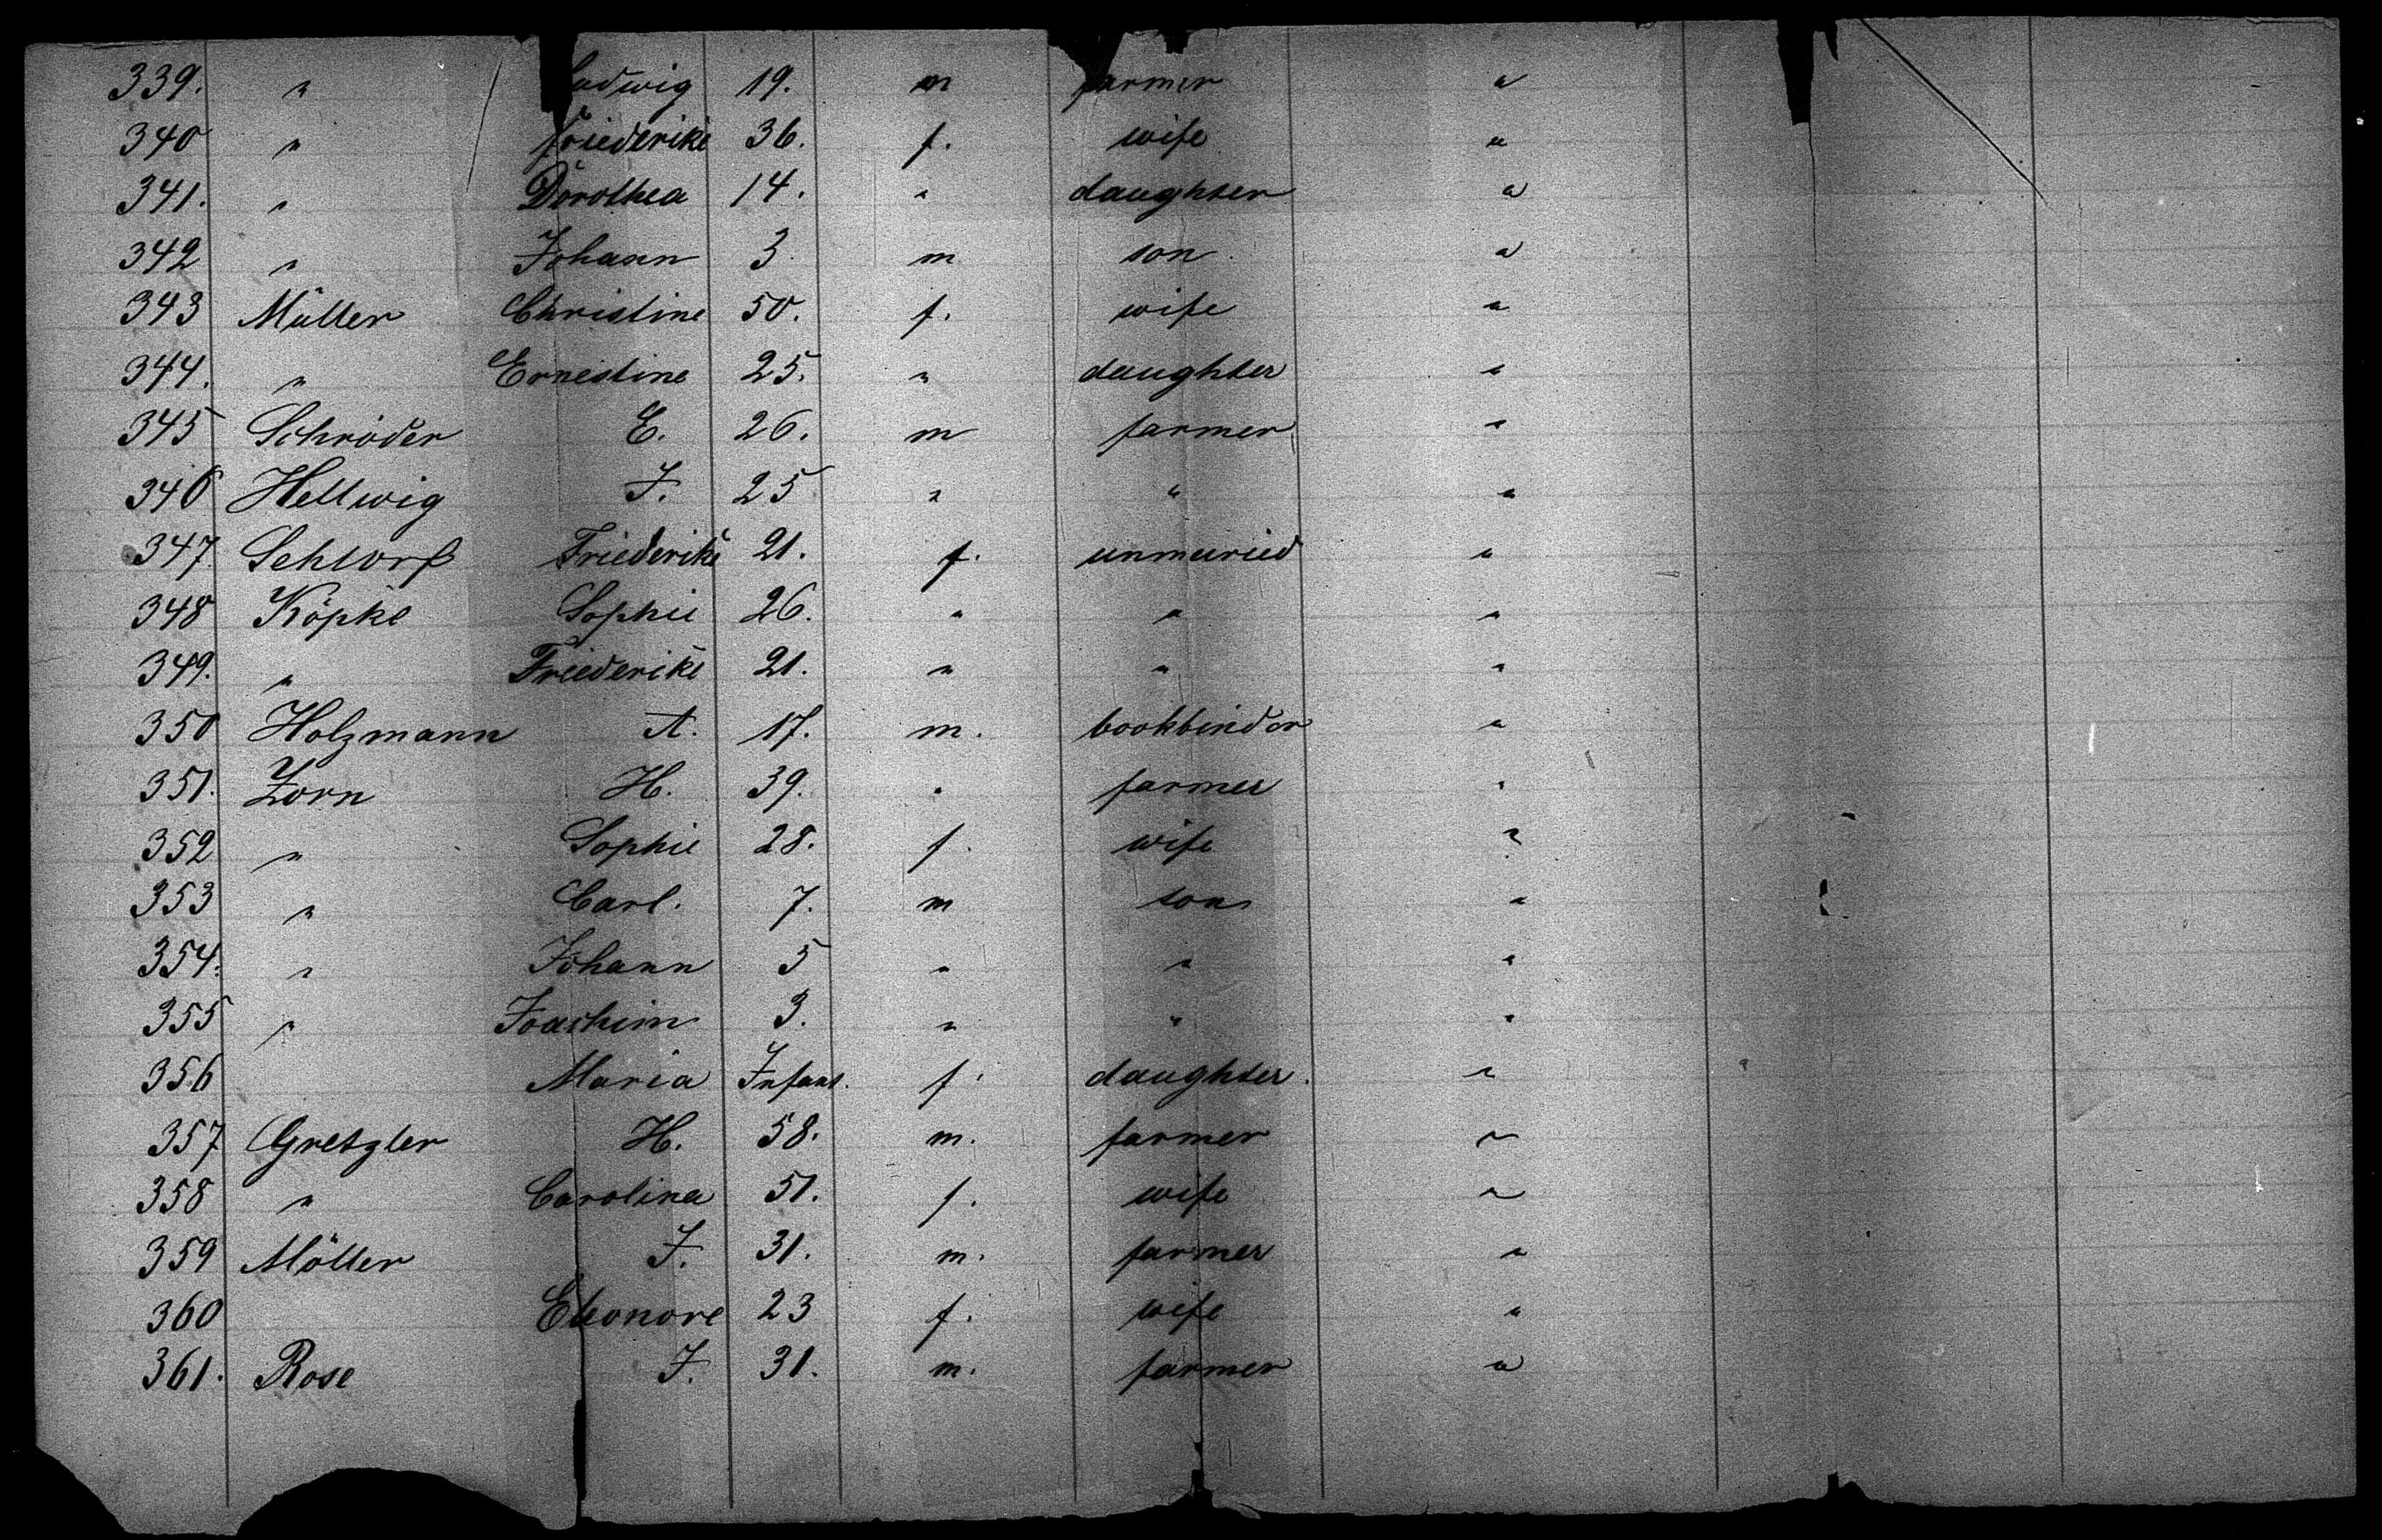 339. " Ludwig 19. m farmer "
340 " Friederike 36. f. wife "
341. " Dorothea 14. " daughter "
342 " Johann 3. m son "
343 Müller Christine 50. f. wife "
344. " Ernestine 25. " daughter "
345 Schröder E. 26. m farmer "
346 Hellwig J. 25 " " "
347. Schlorf Friederike 21. f. unmaried "
348 Köpke Sophie 26. " " "
349. " Friederike 21. " " "
350 Holzmann A. 17. m. bookbinder "
351. Zorn H. 39. " farmer "
352 " Sophie 28. f. wife "
353 " Carl. 7. m son "
354. " Johann 5 " " "
355 " Joachim 3. " " "
356 Maria Infant. f. daughter. "
357 Gretzler H. 58. m. farmer "
358 " Carolina 51. f. wife "
359 Möller J. 31. m. farmer "
360 Eleonore 23 f. wife "
361. Rose J. 31. m. farmer "